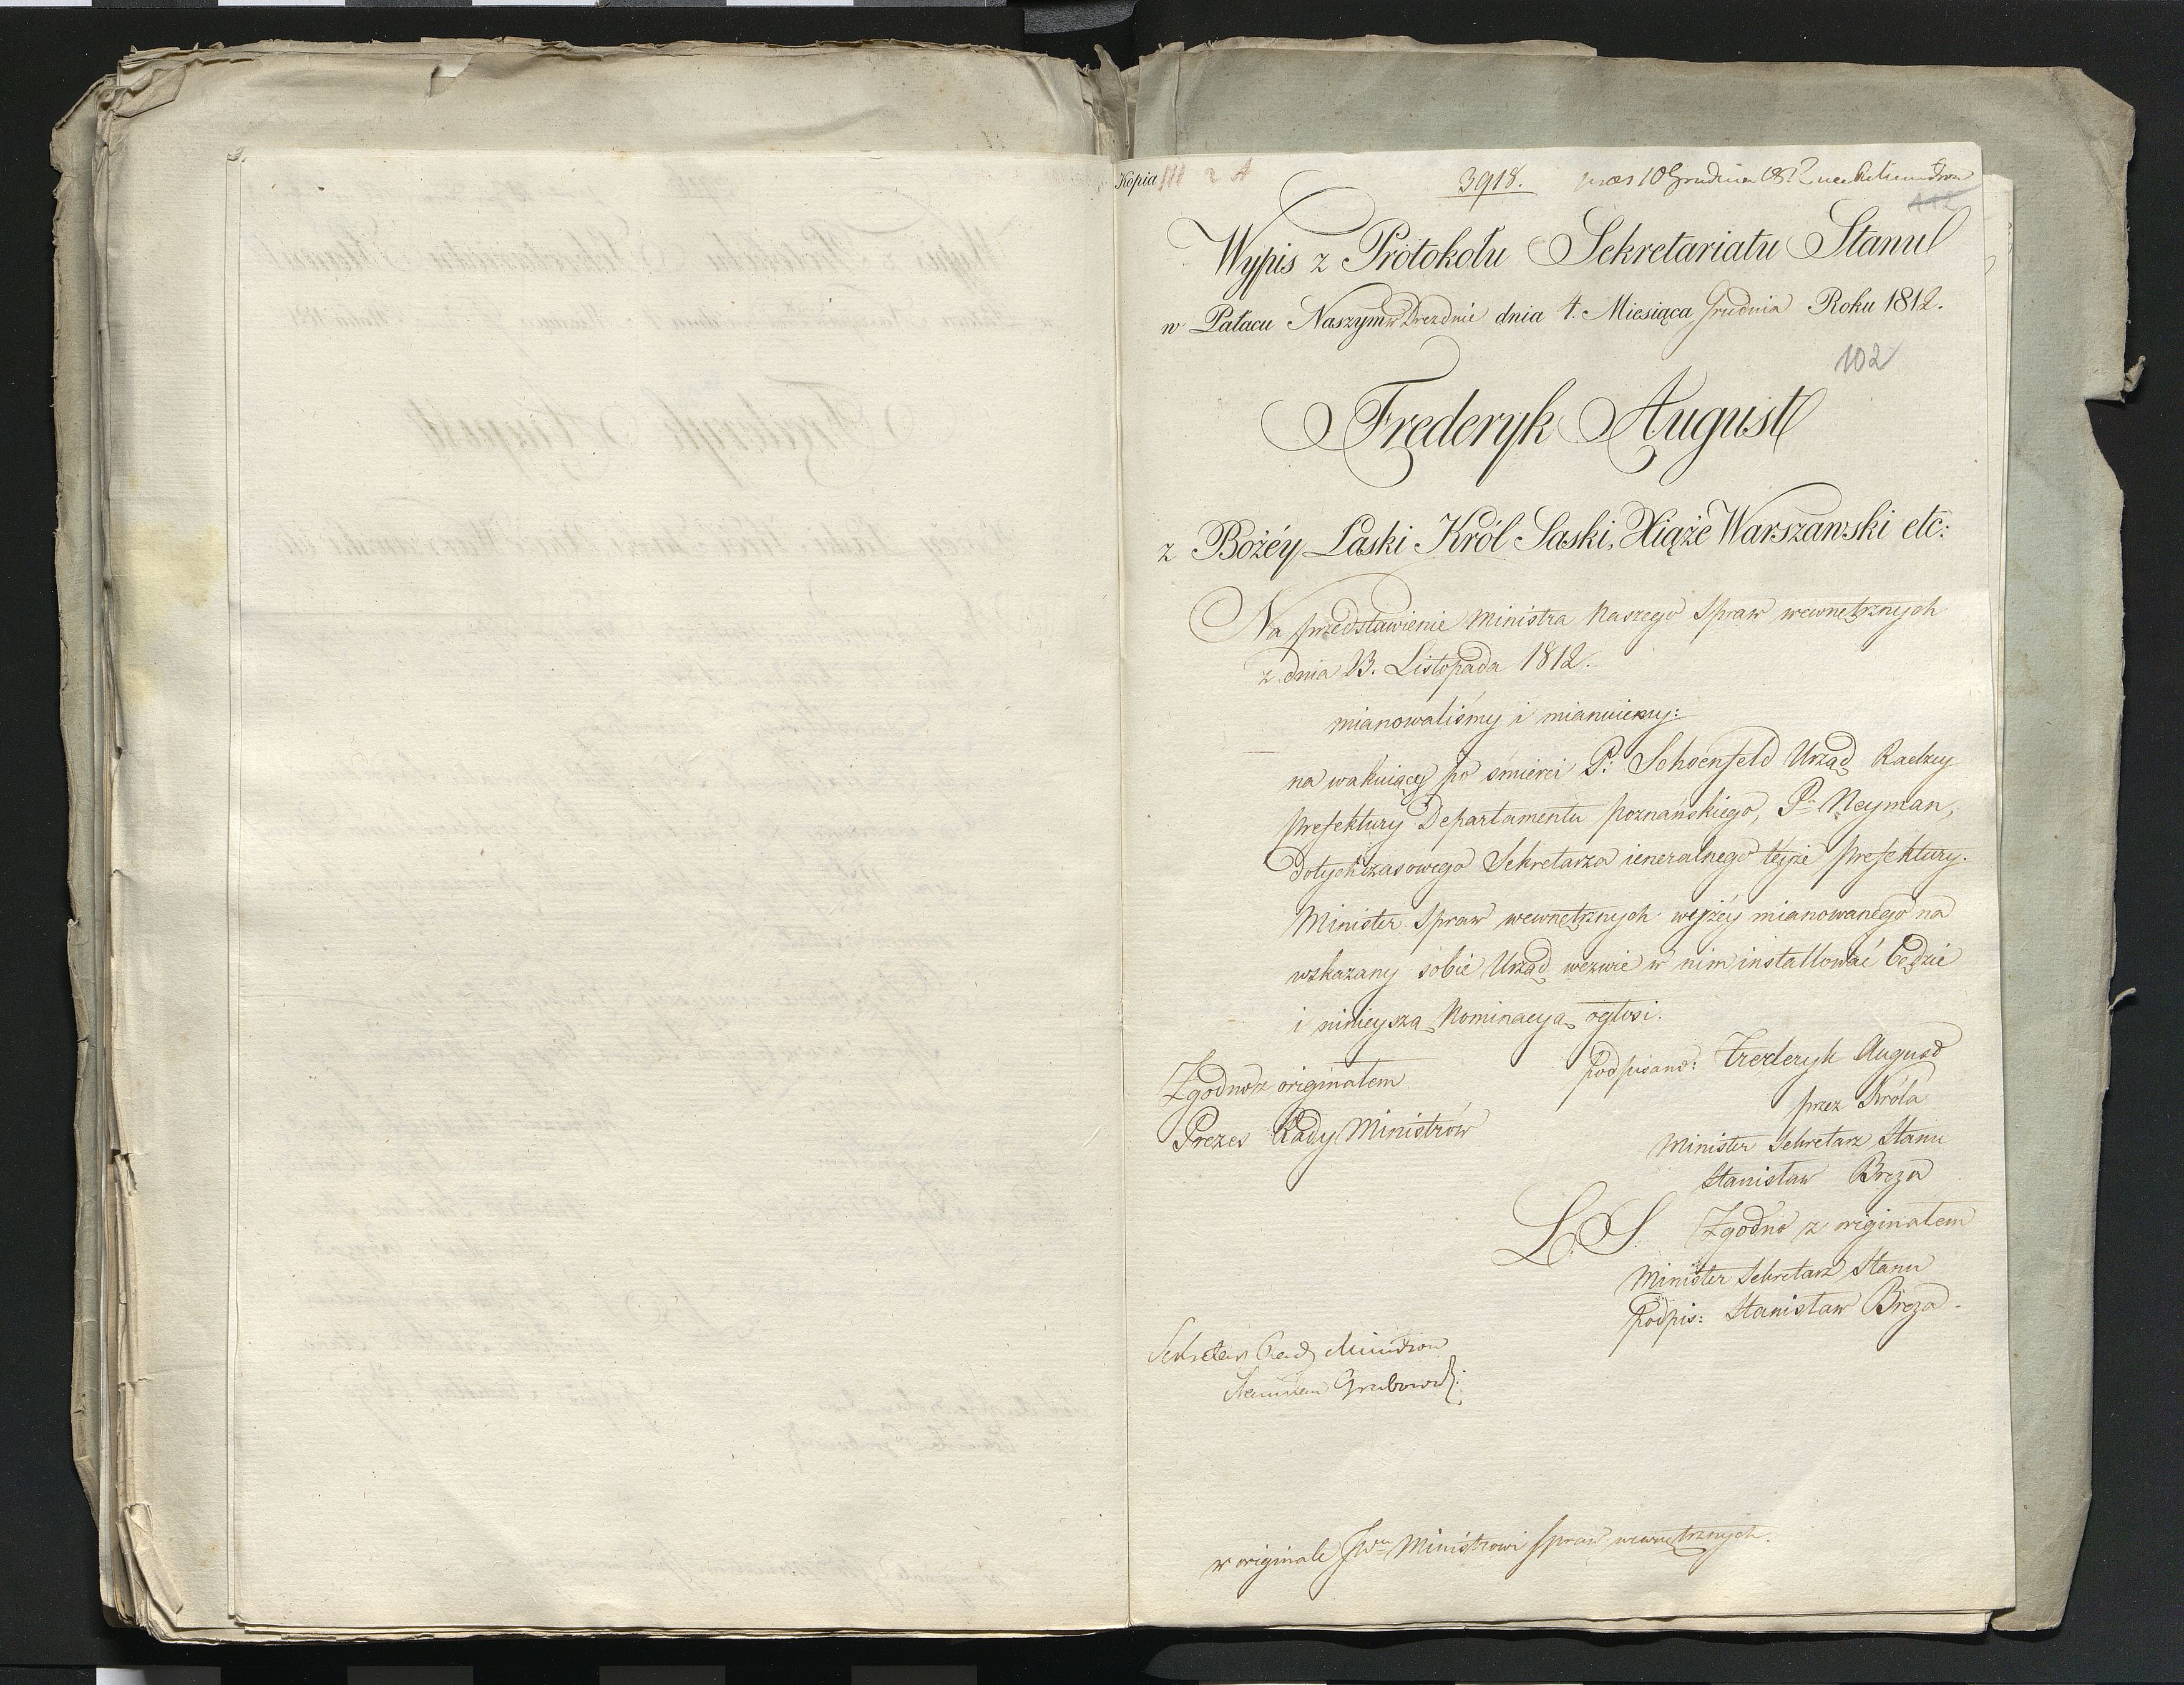 Kopia
3918.
10 Grudnia 1812
112
Wypis z Protokołu Sekretariatu Stanu
w Pałacu Naszym w Dreznie dnia 4. Miesiąca Grudnia Roku 1812.
102
Frederyk August
z Bożéy Łaski Król Saski, Xiąże Warszawski etc:
Na przedstawienie Ministra Naszego Spraw wewnętrznych
z dnia 23. Listopada 1812.
mianowaliśmy i mianuiemy:
na wakuiący po śmierci P. Schoenfeld Urząd Radzcy
Prefektury Departamentu poznańskiego, P. Neyman,
dotychczasowego Sekretarza ieneralnego téyże Prefektury.
Minister Spraw wewnętrznych wyżéy mianowanego na
wskazany sobie Urząd wezwie w nim installować będzie
i ninieyszą Nominacyą ogłosi.
Podpisano: Frederyk August
przez Króla
Minister Sekretarz Stanu
Stanisław Breza
Zgodno z originałem
Prezes Rady Ministrów
L. S. Zgodno z originałem
Minister Sekretarz Stanu
Podpis: Stanisław Breza
Sekretarz Rady Ministrow
Stanisław Grabowski
w originale JWu Ministrowi Spraw wewnętrznych.